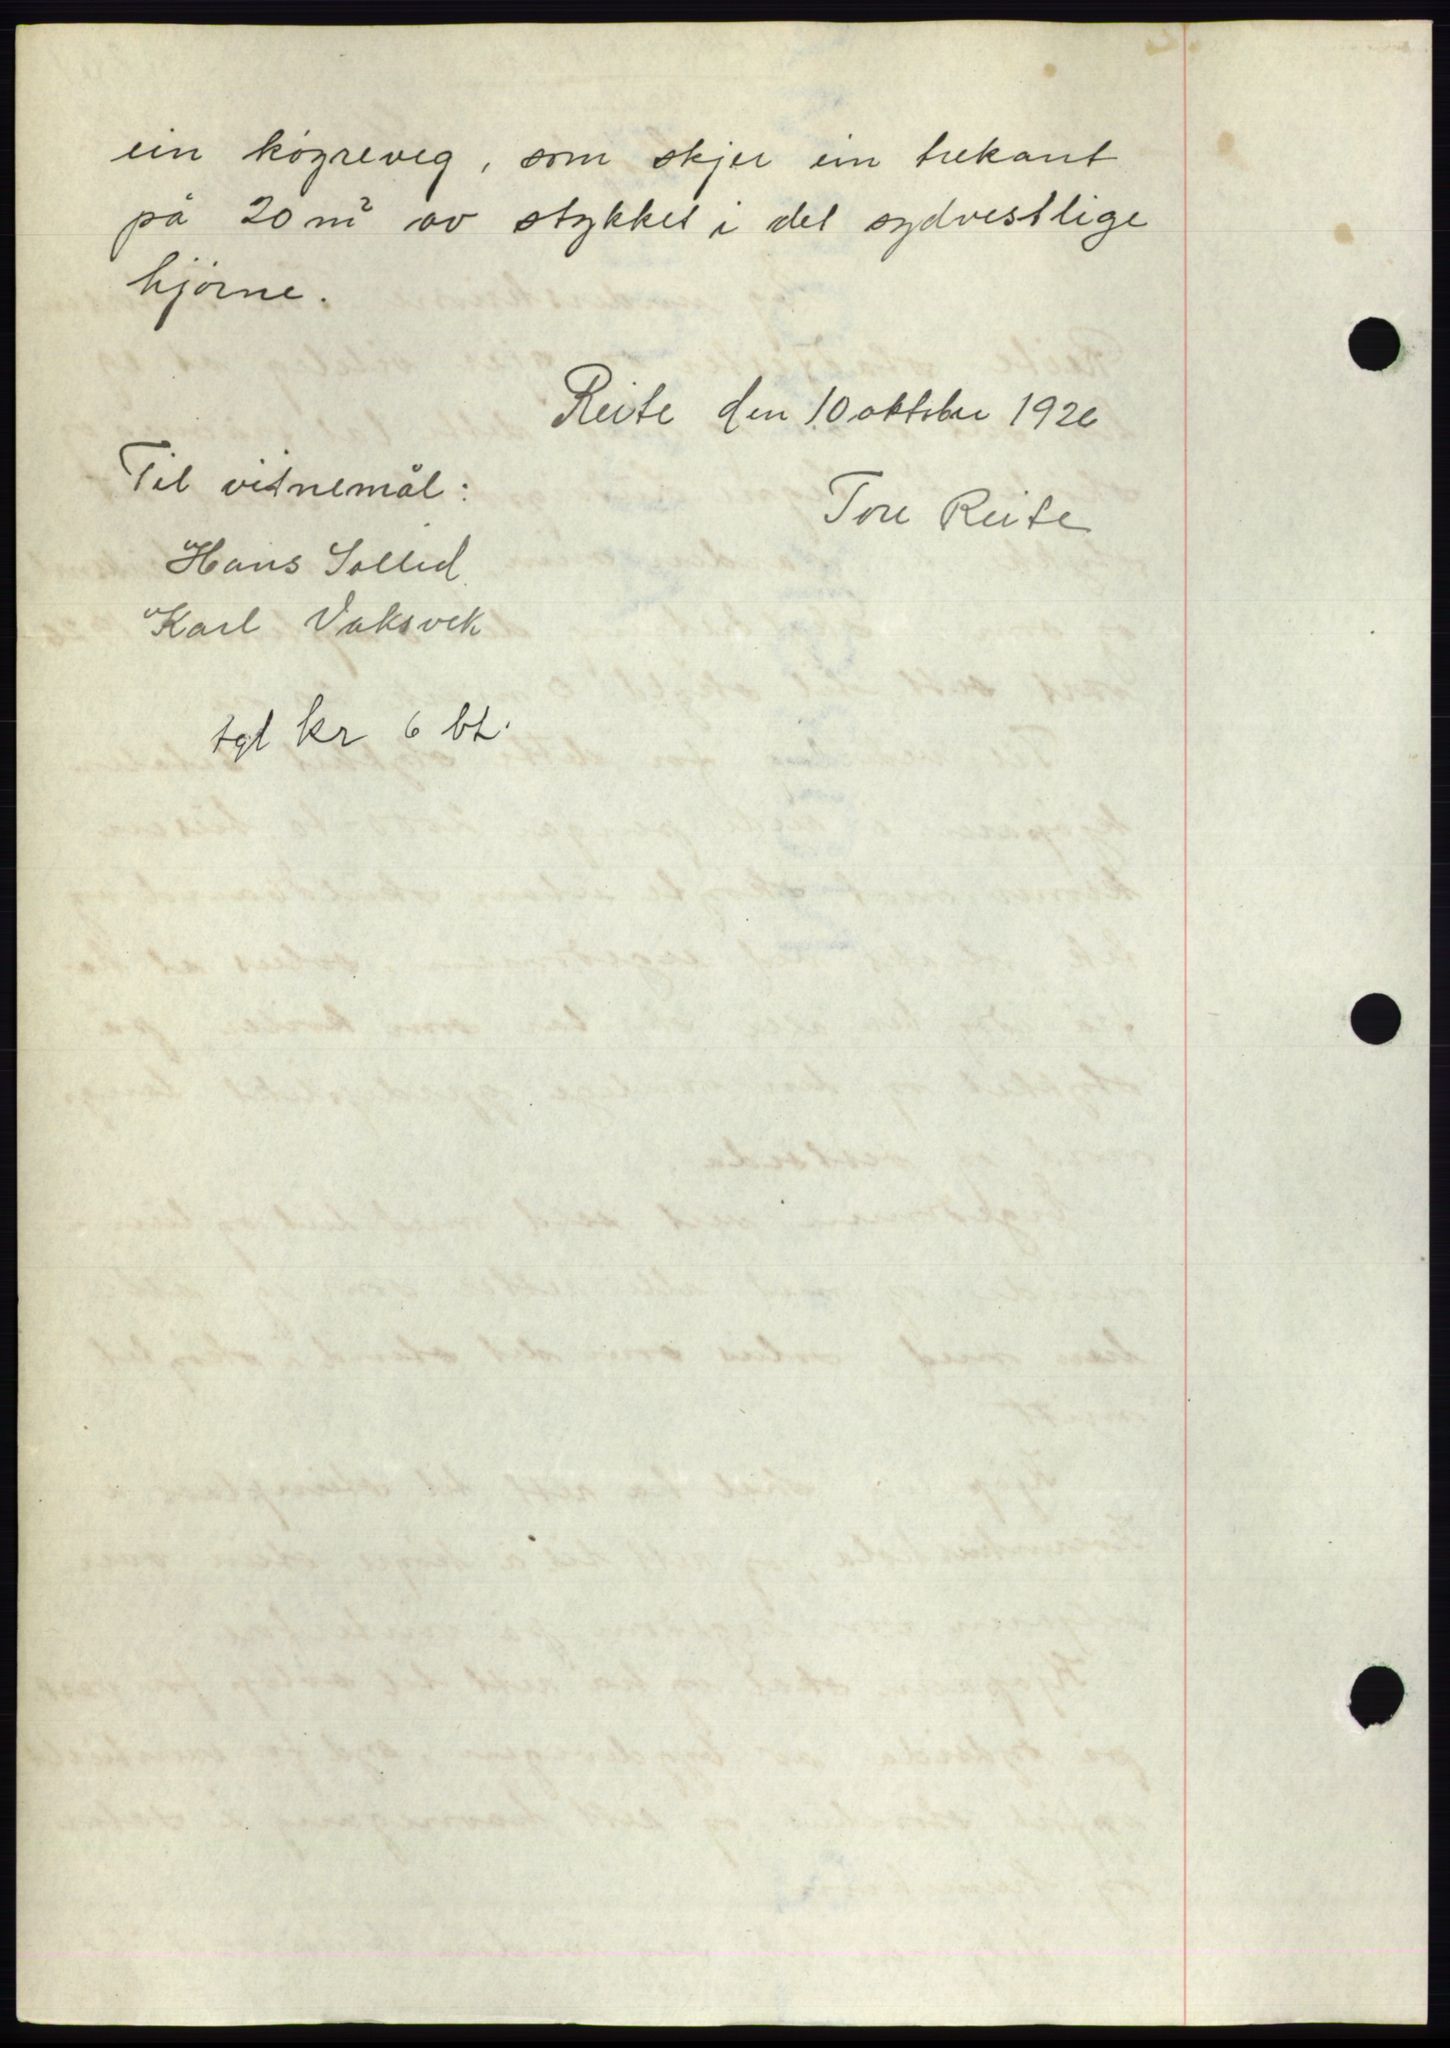 ein køyreveg, som skjer ein trekant
på 20 m² av stykket i det sydvestlige
hjørne.
Reite den 10 oktober 1926
Til vitnemål:
Tore Reite
Hans Sollid
Karl Vaksvik
tgl kr 6 bt.